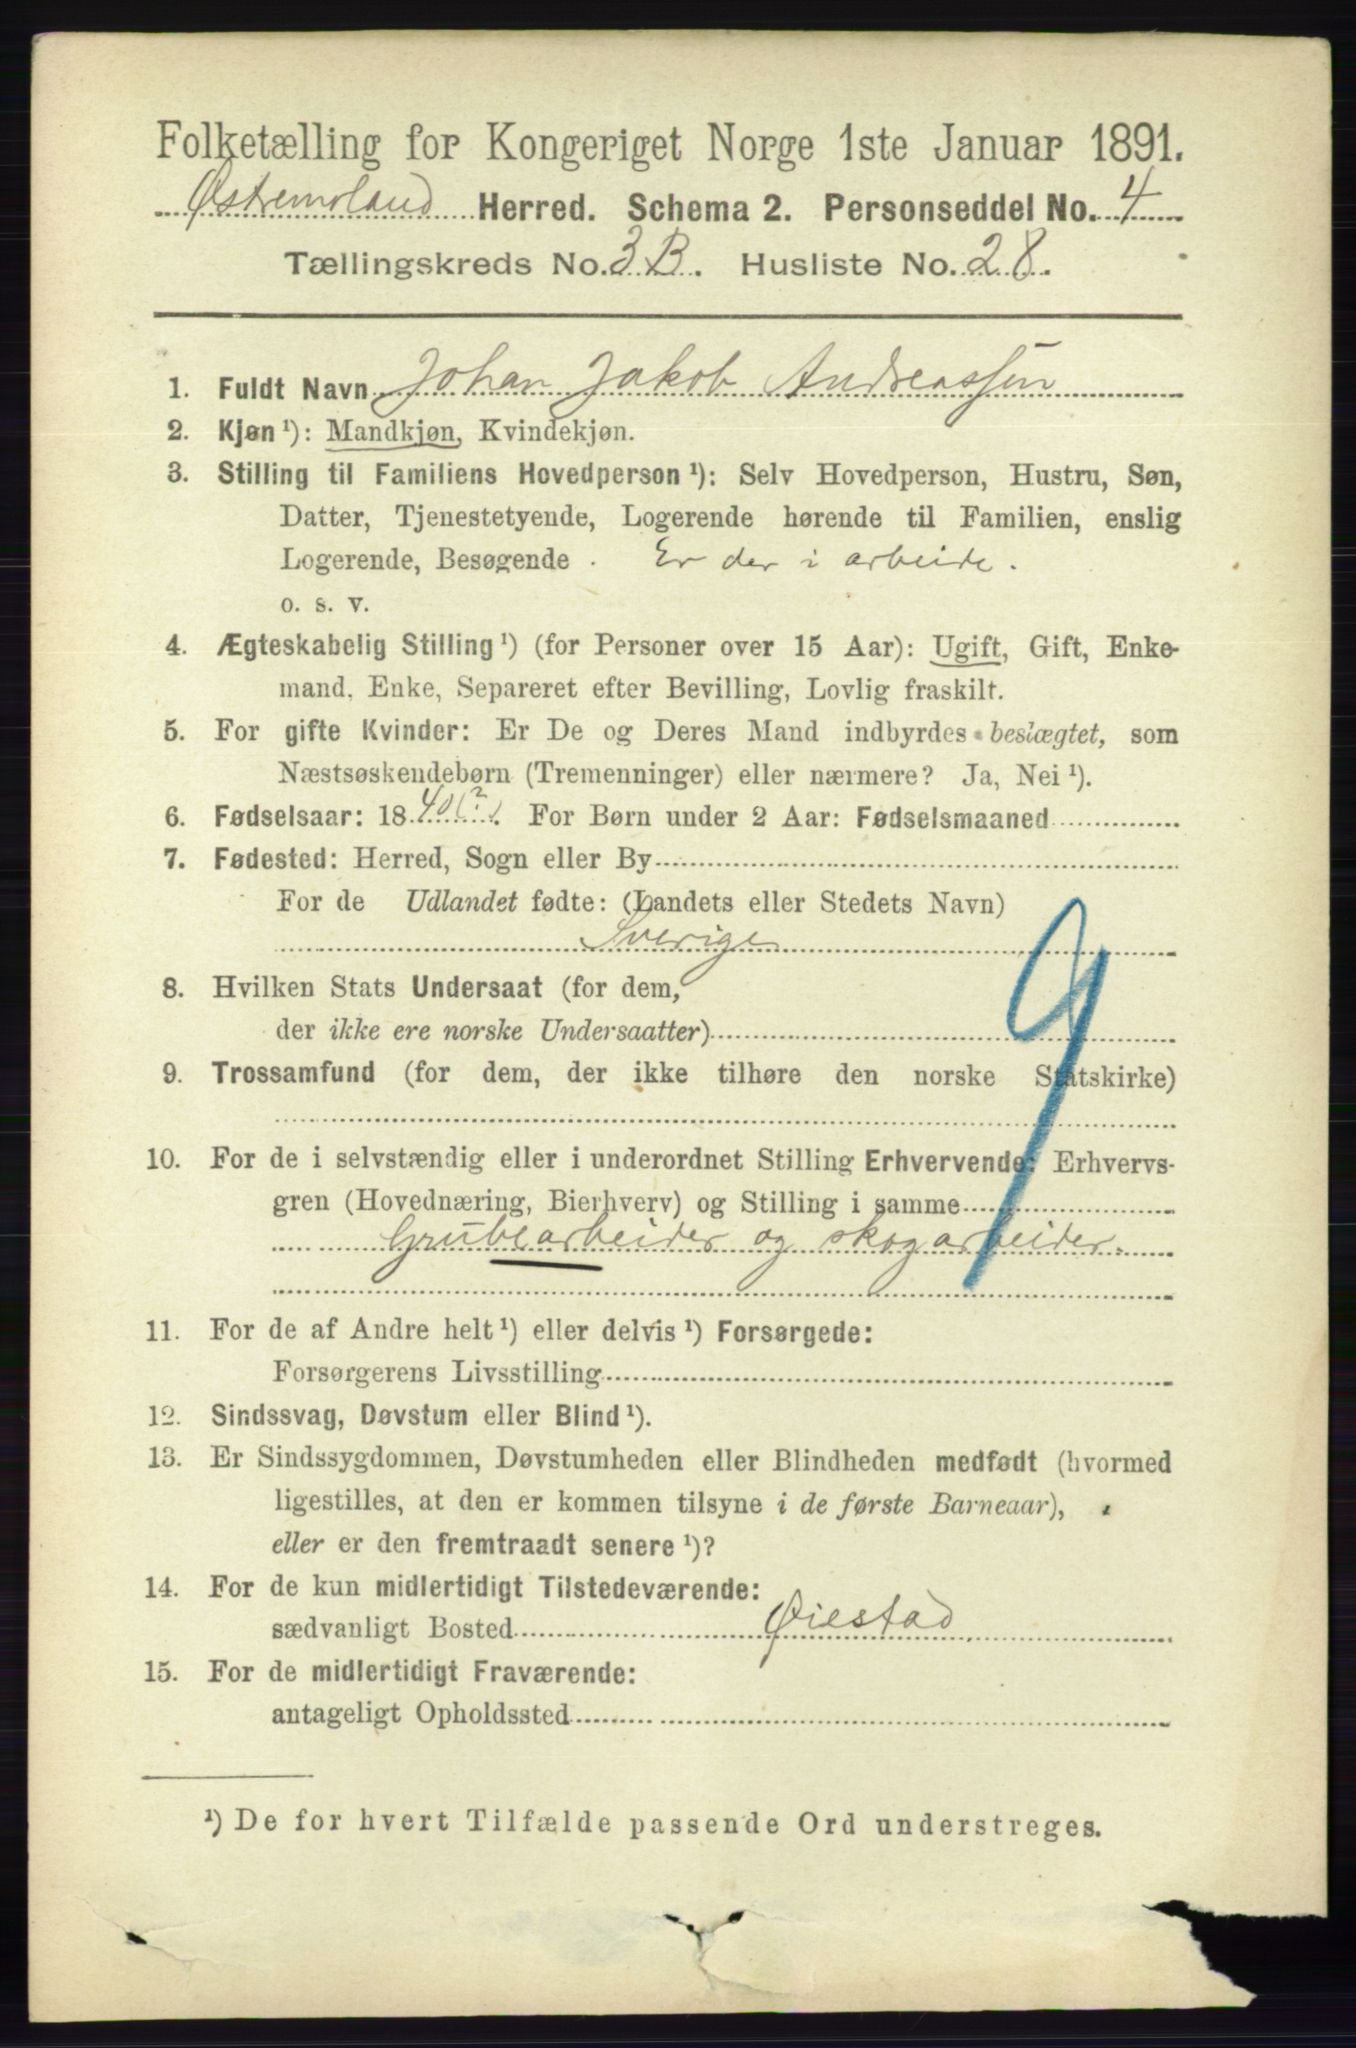 Folketælling for Kongeriget Norge 1ste Januar 1891.
Østremoland Herred. Schema 2. Personseddel No. 4
Tællingskreds No. 3 B. Husliste No. 28.
1. Fuldt Navn Johan Jakob Andreassen
2. Kjøn ¹): Mandkjøn, Kvindekjøn.
3. Stilling til Familiens Hovedperson ¹): Selv Hovedperson, Hustru, Søn,
Datter, Tjenestetyende, Logerende hørende til Familien, enslig
Logerende, Besøgende . Er der i arbeide.
o. s. v.
4. Ægteskabelig Stilling ¹) (for Personer over 15 Aar): Ugift, Gift, Enke-
mand, Enke, Separeret efter Bevilling, Lovlig fraskilt.
5. For gifte Kvinder: Er De og Deres Mand indbyrdes beslægtet, som
Næstsøskendebørn (Tremenninger) eller nærmere? Ja, Nei ¹).
6. Fødselsaar: 1840 (?). For Børn under 2 Aar: Fødselsmaaned
7. Fødested: Herred, Sogn eller By
For de Udlandet fødte: (Landets eller Stedets Navn)
Sverige
8. Hvilken Stats Undersaat (for dem,
der ikke ere norske Undersaatter)
9. Trossamfund (for dem, der ikke tilhøre den norske Statskirke)
9
10. For de i selvstændig eller i underordnet Stilling Erhvervende: Erhvervs-
gren (Hovednæring, Bierhverv) og Stilling i samme
Grubearbeider og skogarbeider.
11. For de af Andre helt ¹) eller delvis ¹) Forsørgede:
Forsørgerens Livsstilling
12. Sindssvag, Døvstum eller Blind ¹).
13. Er Sindssygdommen, Døvstumheden eller Blindheden medfødt (hvormed
ligestilles, at den er kommen tilsyne i de første Barneaar),
eller er den fremtraadt senere ¹)?
14. For de kun midlertidigt Tilstedeværende:
sædvanligt Bosted Øiestad
15. For de midlertidigt Fraværende:
antageligt Opholdssted
¹) De for hvert Tilfælde passende Ord understreges.